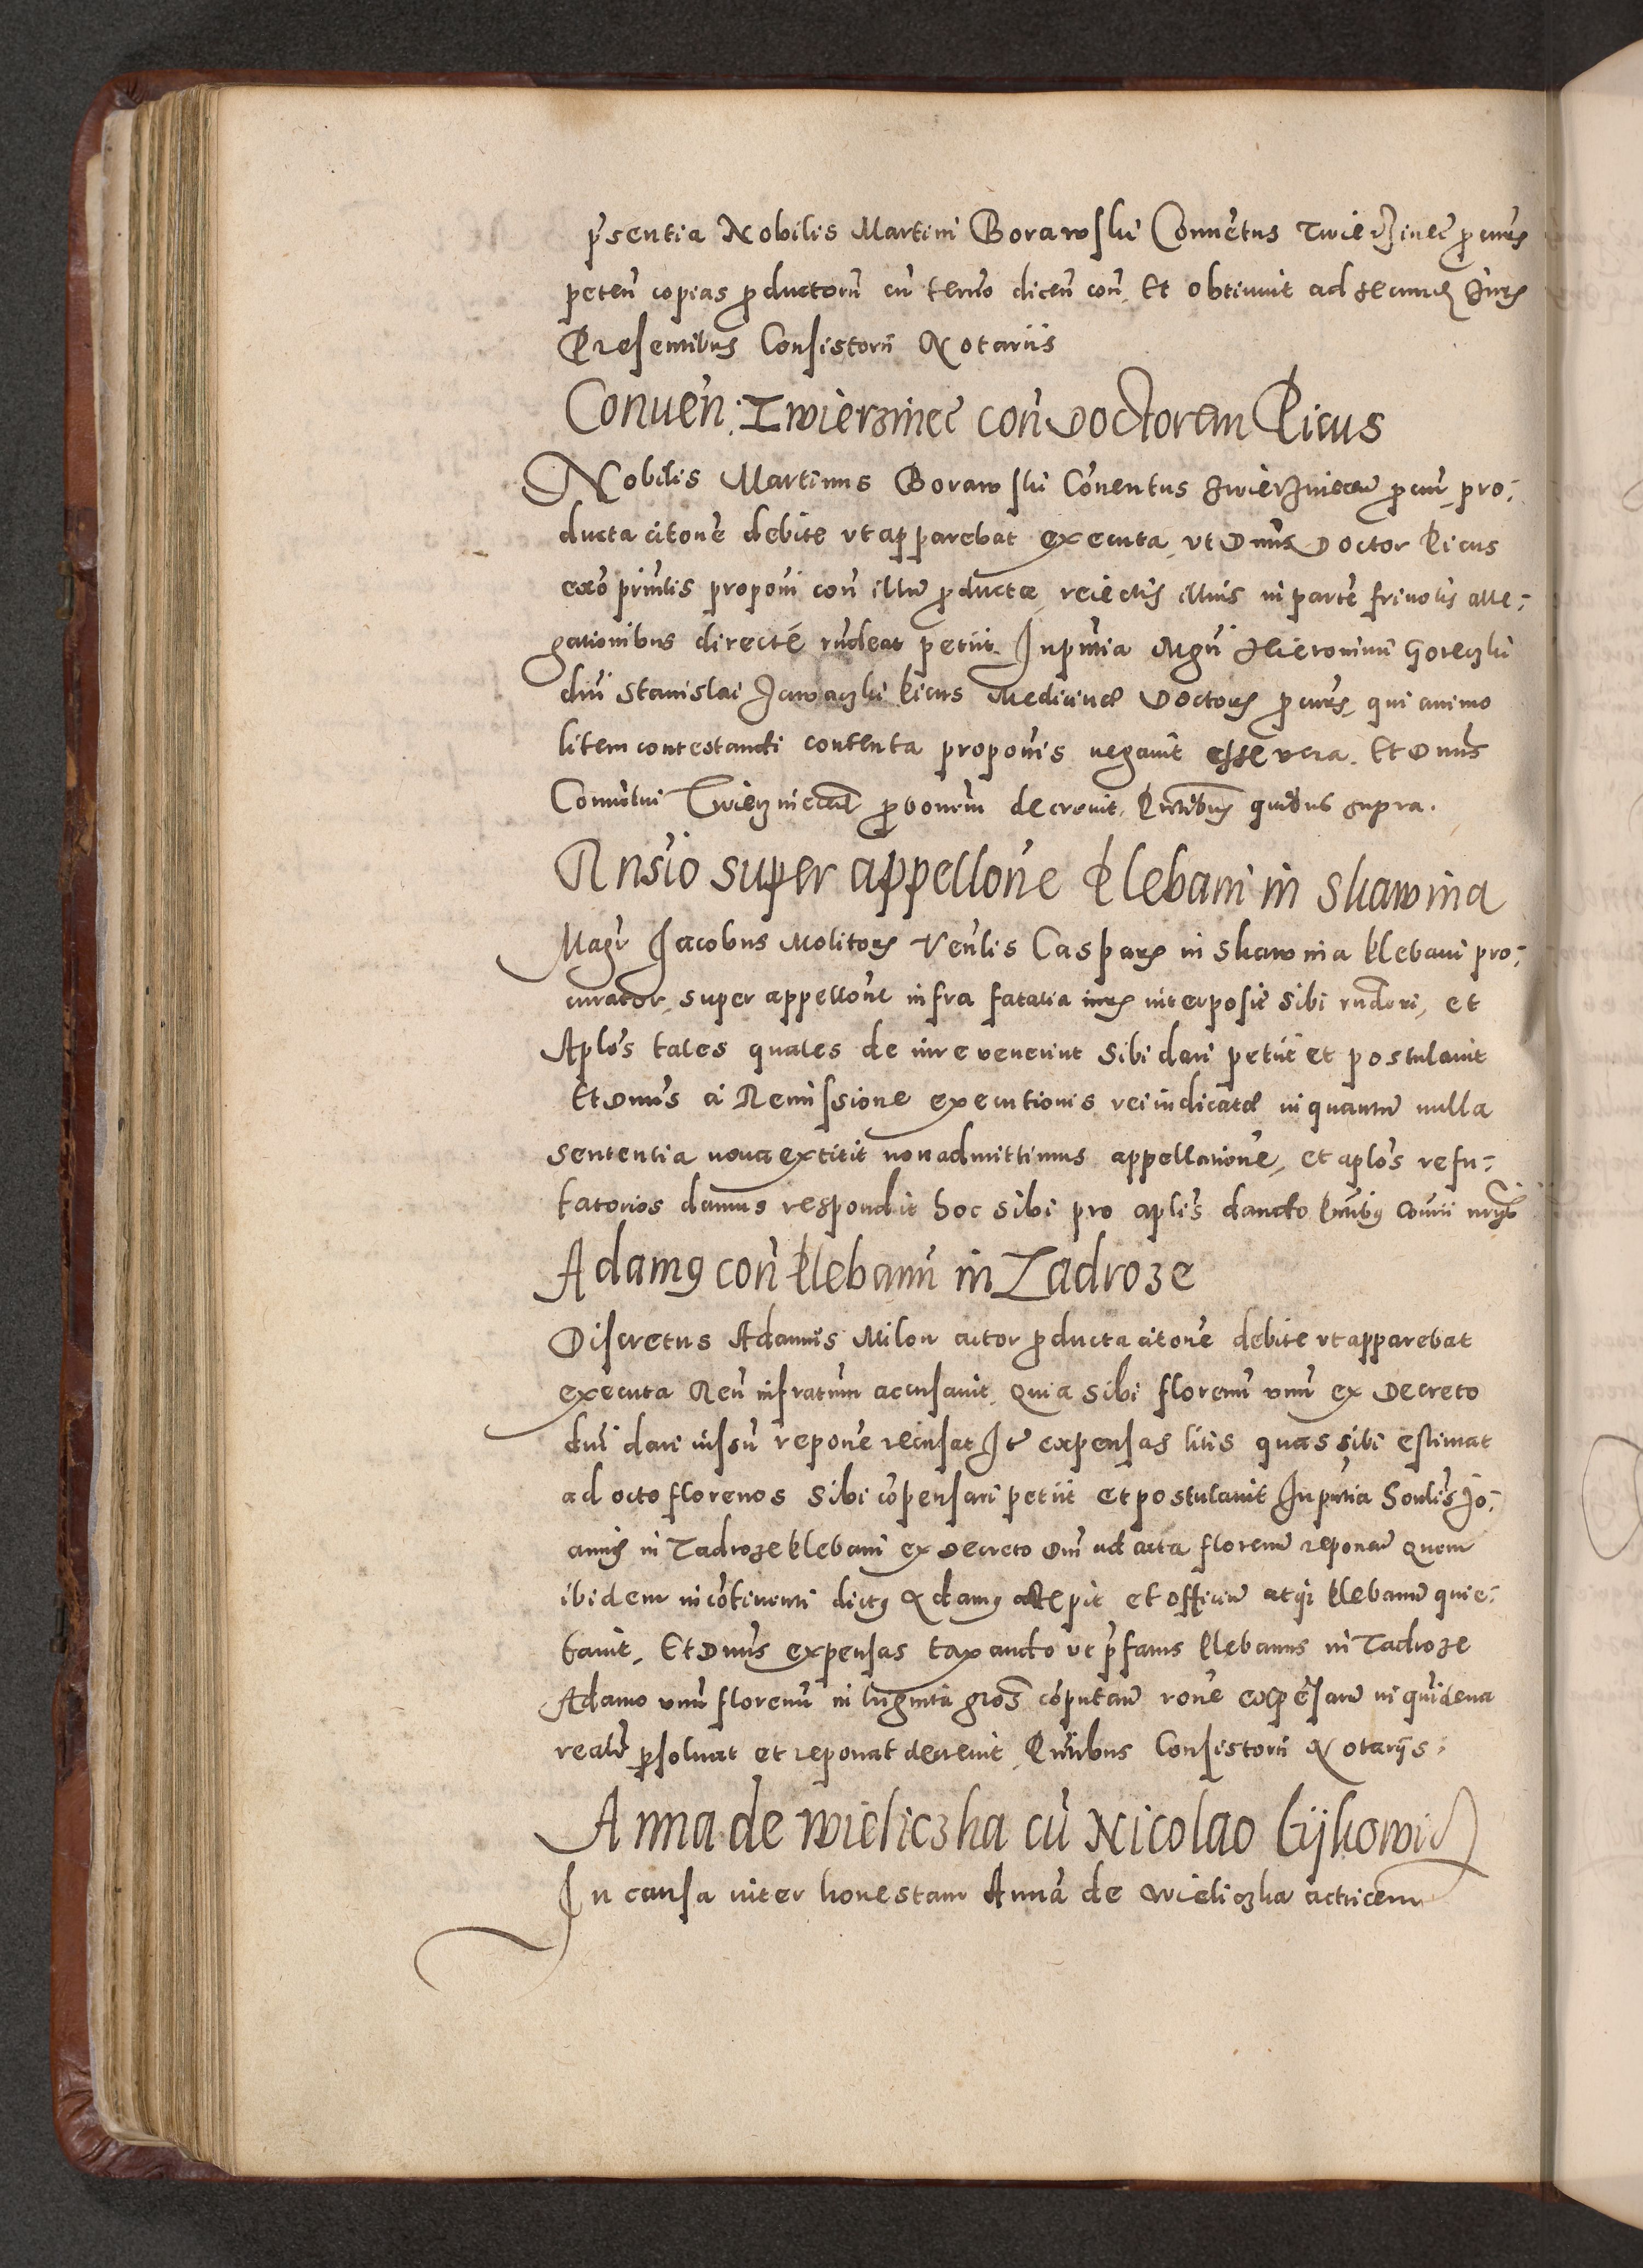 p̃sentia Nobilis Martini Borawski Conuẽtus Zwierzinec̃ procur̃is
peteñ copias productorũ cũ termo diceñ coñ. Et obtinuit ad secundã Juris
Presentibus Consistorii Notariis
Conueñ: Zwierzinec̃ coñ Doctorem Picus
Nobilis Martinus Borawski Cõnentus Zwierzniecen̄ procur̃, pro:
ducta citone debite vt apparebat executa, vt Dnus Doctor Picus
exõ primlis proponi coñ illũ producte, reiectis illius in parte friuolis alle:
gationibus directé rñdeat petiit. In pñtia Mgri Hieronimi Goreczki
dñi Stanislai Picus Medicinæ Doctoris procur̃is, qui animo
litem contestandi contenta proponis negauit esse vera. Et Dnus
Conuẽtui Zwierzniecen̄ probonem decreuit. Pñtibus quibus supra.
Rñsio super appellone Plebani in Skawina
Magr̃ Jacobus Molitoris Veñlis Casparis in Skawina Plebani pro:
curator, super appellone infra fatalia iuris interposit̃ sibi rñderi, et
Aplõs tales quales de iure venerint sibi dari petiit et postulauit
Et Dnus a Remissione executionis rei iudicatæ in quantũ nulla
sententia noua extitit non admittimus appellatione, et aplõs refu:
tatorios damus respondit hoc sibi pro aplis dando Pñtibus
Adamus coñ Plebanũ in Zadroze
Discretus Adamus Milon actor producta citone debite vt apparebat
executa Reũ infratum accusauit, Quia sibi florenũ vnũ ex Decreto
dñi dari iussũ repone recusat Itẽ expensas litis quas sibi estimat
ad octo florenos sibi cõpensari petiit et postulauit In pñtia Honlis Jo:
annis in Zadroze Plebani ex decreto Dni ad acta florenũ reponen̄ Quem
ibidem incõtinenti dictus Adamus accepit et officiũ atqi Plebanũ quie:
tauit. Et Dnus expensas taxando vt p̃fatus Plebanus in Zadroze
Adamo vnũ florenũ in triginta gros̃ cõputan̄ rone expẽsarũ in quindena
realr̃ persoluat et reponat decreuit. Pñtibus Consistorii Notarijs.
Anna de Wieliczka cũ Nicolao Lijkowicz
In causa inter honestam Annã de Wieliczka actricem